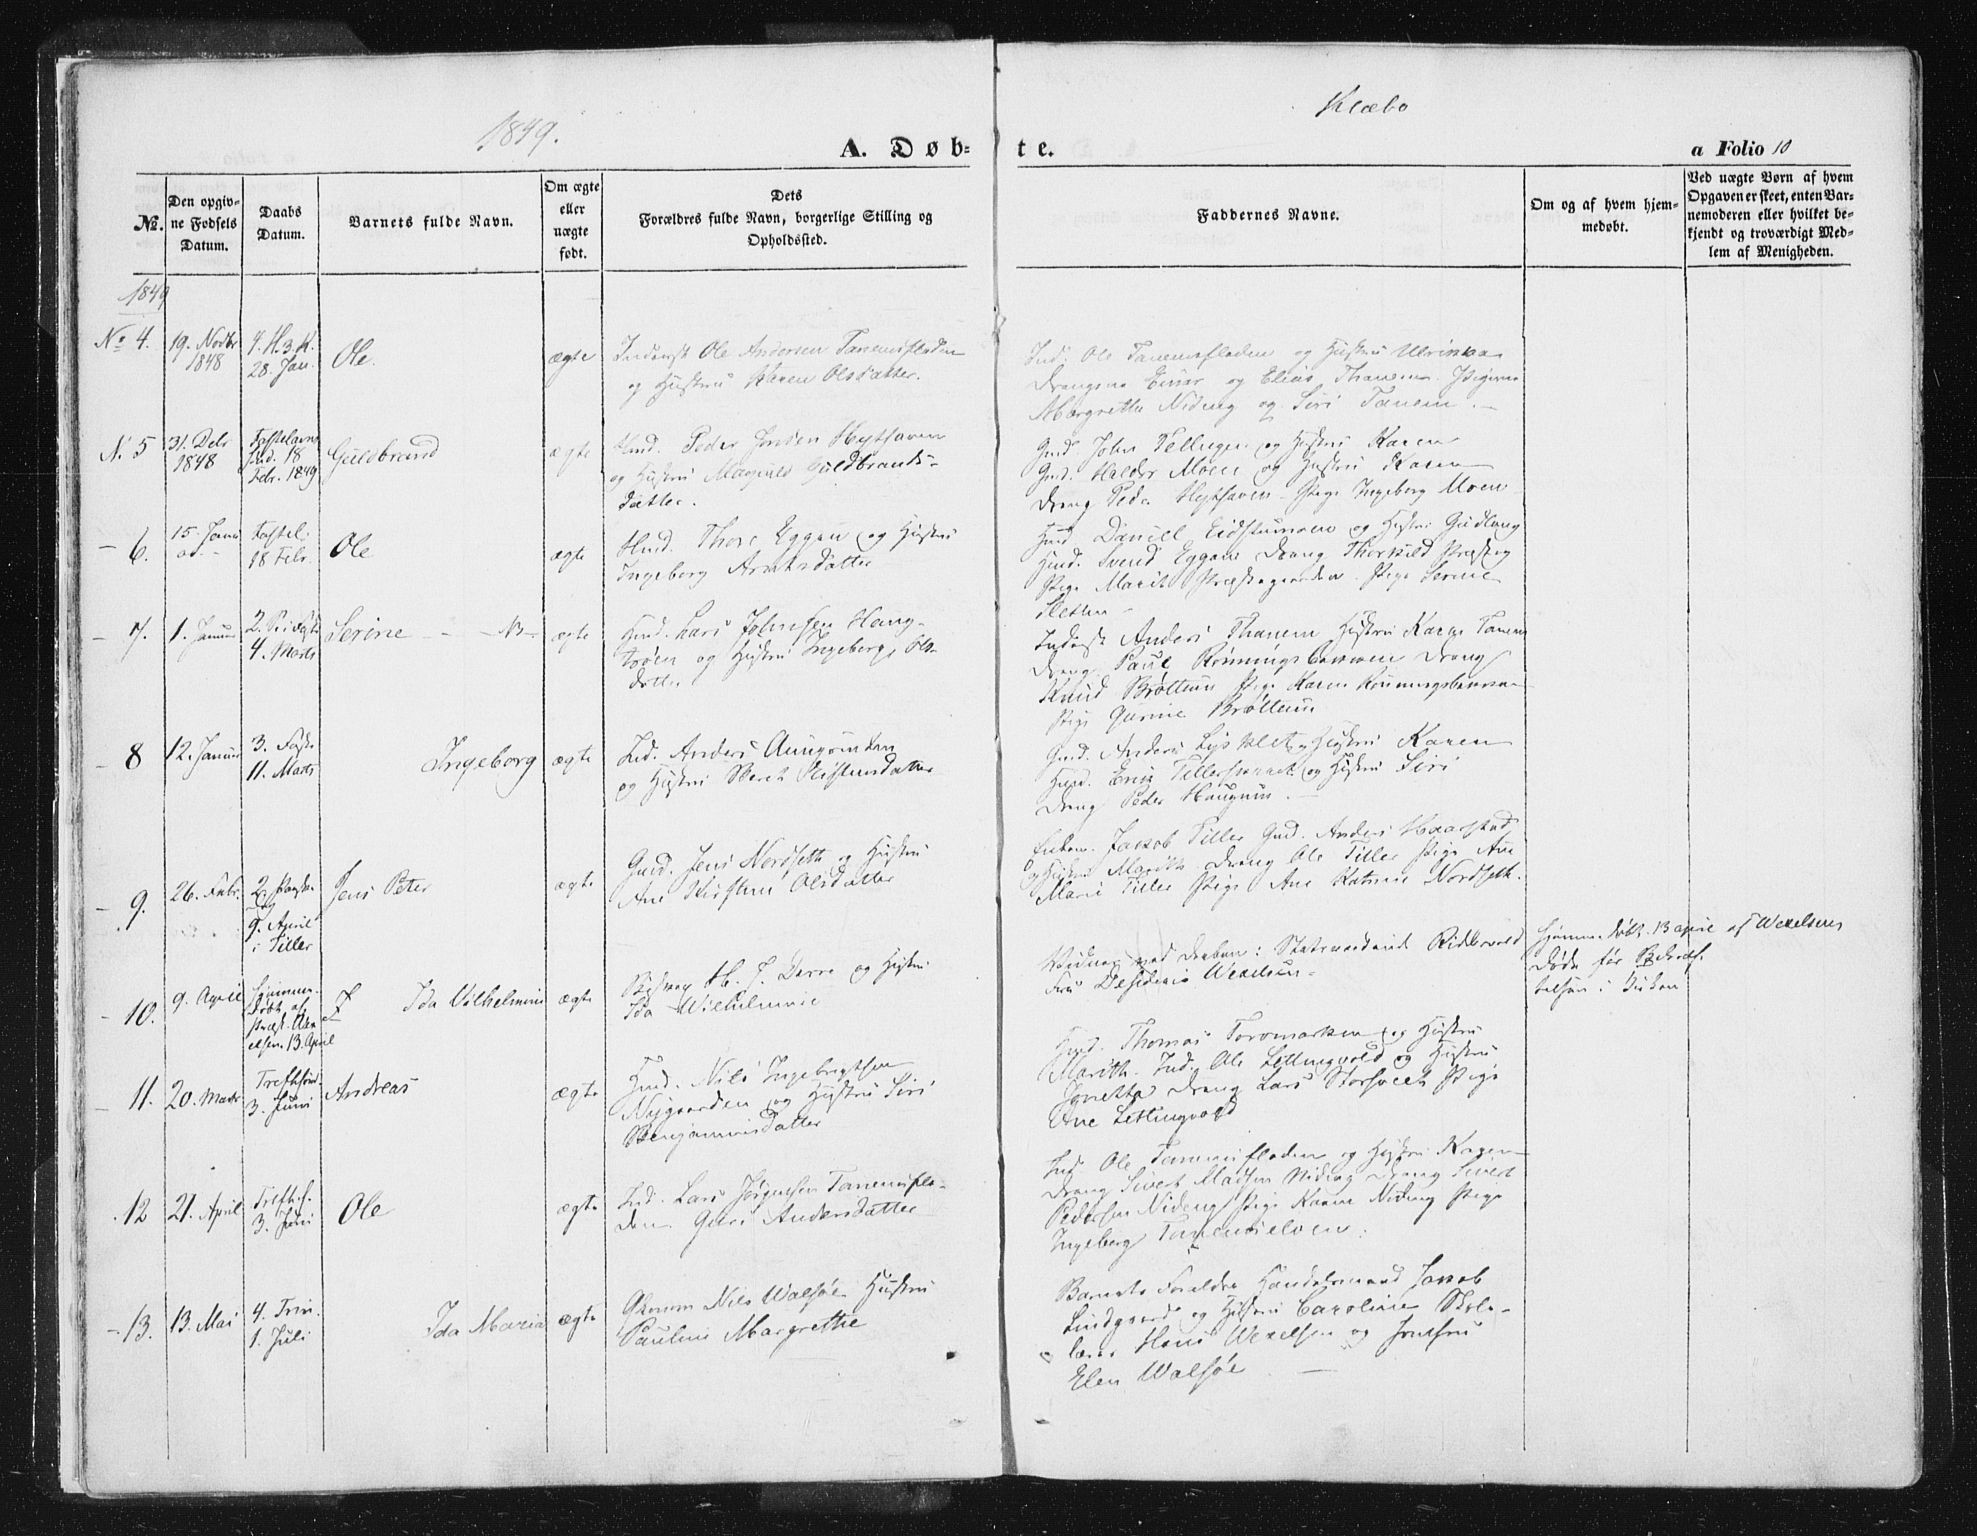 1849.
Klæbo
A. Døb=
te.
a Folio 10
No.
Den opgiv=
ne Fødsels
Datum.
Daabs
Datum.
Barnets fulde Navn.
Om ægte
eller
uægte
født.
Dets
Forældres fulde Navn, borgerlige Stilling og
Opholdssted.
Faddernes Navne.
Om og af hvem hjem=
medøbt.
Ved uægte Børn af hvem
Opgaven er skeet, enten Bar=
nemoderen eller hvilket be=
kjendt og troværdigt Med=
lem af Menigheden.
1849
No 4.
19. Novbr
1848
4. H. 3. K.
28. Jan.
Ole.
ægte
Inderst Ole Andersen Tanemsfladen
og Hustru Karen Olsdatter.
Ind. Ole Tanemsfladen og Hustru Ulrikka
Drengene Einar og Elias Thanem. Pigerne
Margrethe Nideng og Siri Tanem. —
N. 5
31. Debr
1848
Fastelavns
Sønd. 18
Febr. 1849
Guldbrand
ægte
Hmd. Peder Jensen Hythaven
og Hustru Magnild Guldbrands-
datter.
Gmd. John Tellugen og Hustru Karen
Gmd. Haldor Moen og Hustru Karen
Dreng Peder Hythaven. Pige Ingeborg Moen
— 6.
15. Janu
ar. —
Fastel.
18 Febr.
Ole
ægte
Hmd. Thore Eggen og Hustru
Ingeborg Arntsdatter
Hmd Daniel Eidstumoen og Hustru Gudlaug
Hmd. Svend Eggen Dreng Thorkild Præsteg
Pige Marit Præstegaarden. Pige Serine
Sletten —
— 7.
1. Januar
2. S. i Faste
4. Marts
Serine — — NB —
ægte
Hmd. Lars Johnsen Haug-
trøen og Hustru Ingeborg Ols-
datter
Inderst Anders Thanem Hustru Karen Tanem
Dreng Paul Rønningsbakken Dreng
Knud Brøttum Pige Karen Rønningsbakken
Pige Gurine Brøttum
— 8
12. Januar
3. Faste
11. Marts
Ingeborg
ægte
Ind. Anders
og Hustru Beret Kristensdatter
Gmd. Anders Lysklet og Hustru Karen
Hmd. Eric og Hustru Siri
Dreng Peder Haugum. —
— 9.
26. Febr.
2. Paaske
dg
9. April
i Tiller
Jens Peter
ægte
Gmd. Jens Nordseth og Hustru
Ane Kirstine Olsdatter
Enkem. Jacob Tiller Gmd. Anders Haarstad
og Hustru Marith Dreng Ole Tiller Pige Ane
Marie Tiller Pige Ane Katrine Nordseth.
— 10.
9. April
Hjemme-
døbt af
Præst. Wex
elsen 13. April
Ida Vilhelmine
ægte
H. J. Darre og Hustru
Ida Wilhelmine
Vidner ved Daaben: Statsraadinde Riddervold
Fru Desideria Wexelsen.
Hjemmedøbt 13 april af Wexelsen
Døde før Bekræf-
telsen i Kirken
— 11.
20. Marts
Trefhsønd.
3. Juni
Andreas
ægte
Hmd. Nils Ingebrigtsen
Nygaarden og Hustru Siri
Benjaminsdatter
Hmd. Thomas Toromarken og Hustru
Marith. Ind. Ole Lettingvold og Hustru
Agnetta Dreng Lars Storsveet Pige
Ane Lettingvold
— 12
21. April
Trefhs.
3. Juni
Ole
ægte
Ind. Lars Jørgensen Tanemsfla-
den. Guri Andersdatter
Ind. Ole Tanemsfladen og Hustru Karen
Dreng Sivert Madsen Nideng Dreng Sivert
Pedersen Nideng Pige Karen Nideng Pige
Ingeborg
— 13.
13. Mai
4. Trin.
1. Juli
Ida Maria
ægte
Nils Walsøe Hustru
Pauline Margrethe
Barnets Forældre Handelsmand Jacob
Lindgaard og Hustru Caroline Skole-
lærer Hans Wexelsen og Jomfru
Elen Walsøe —